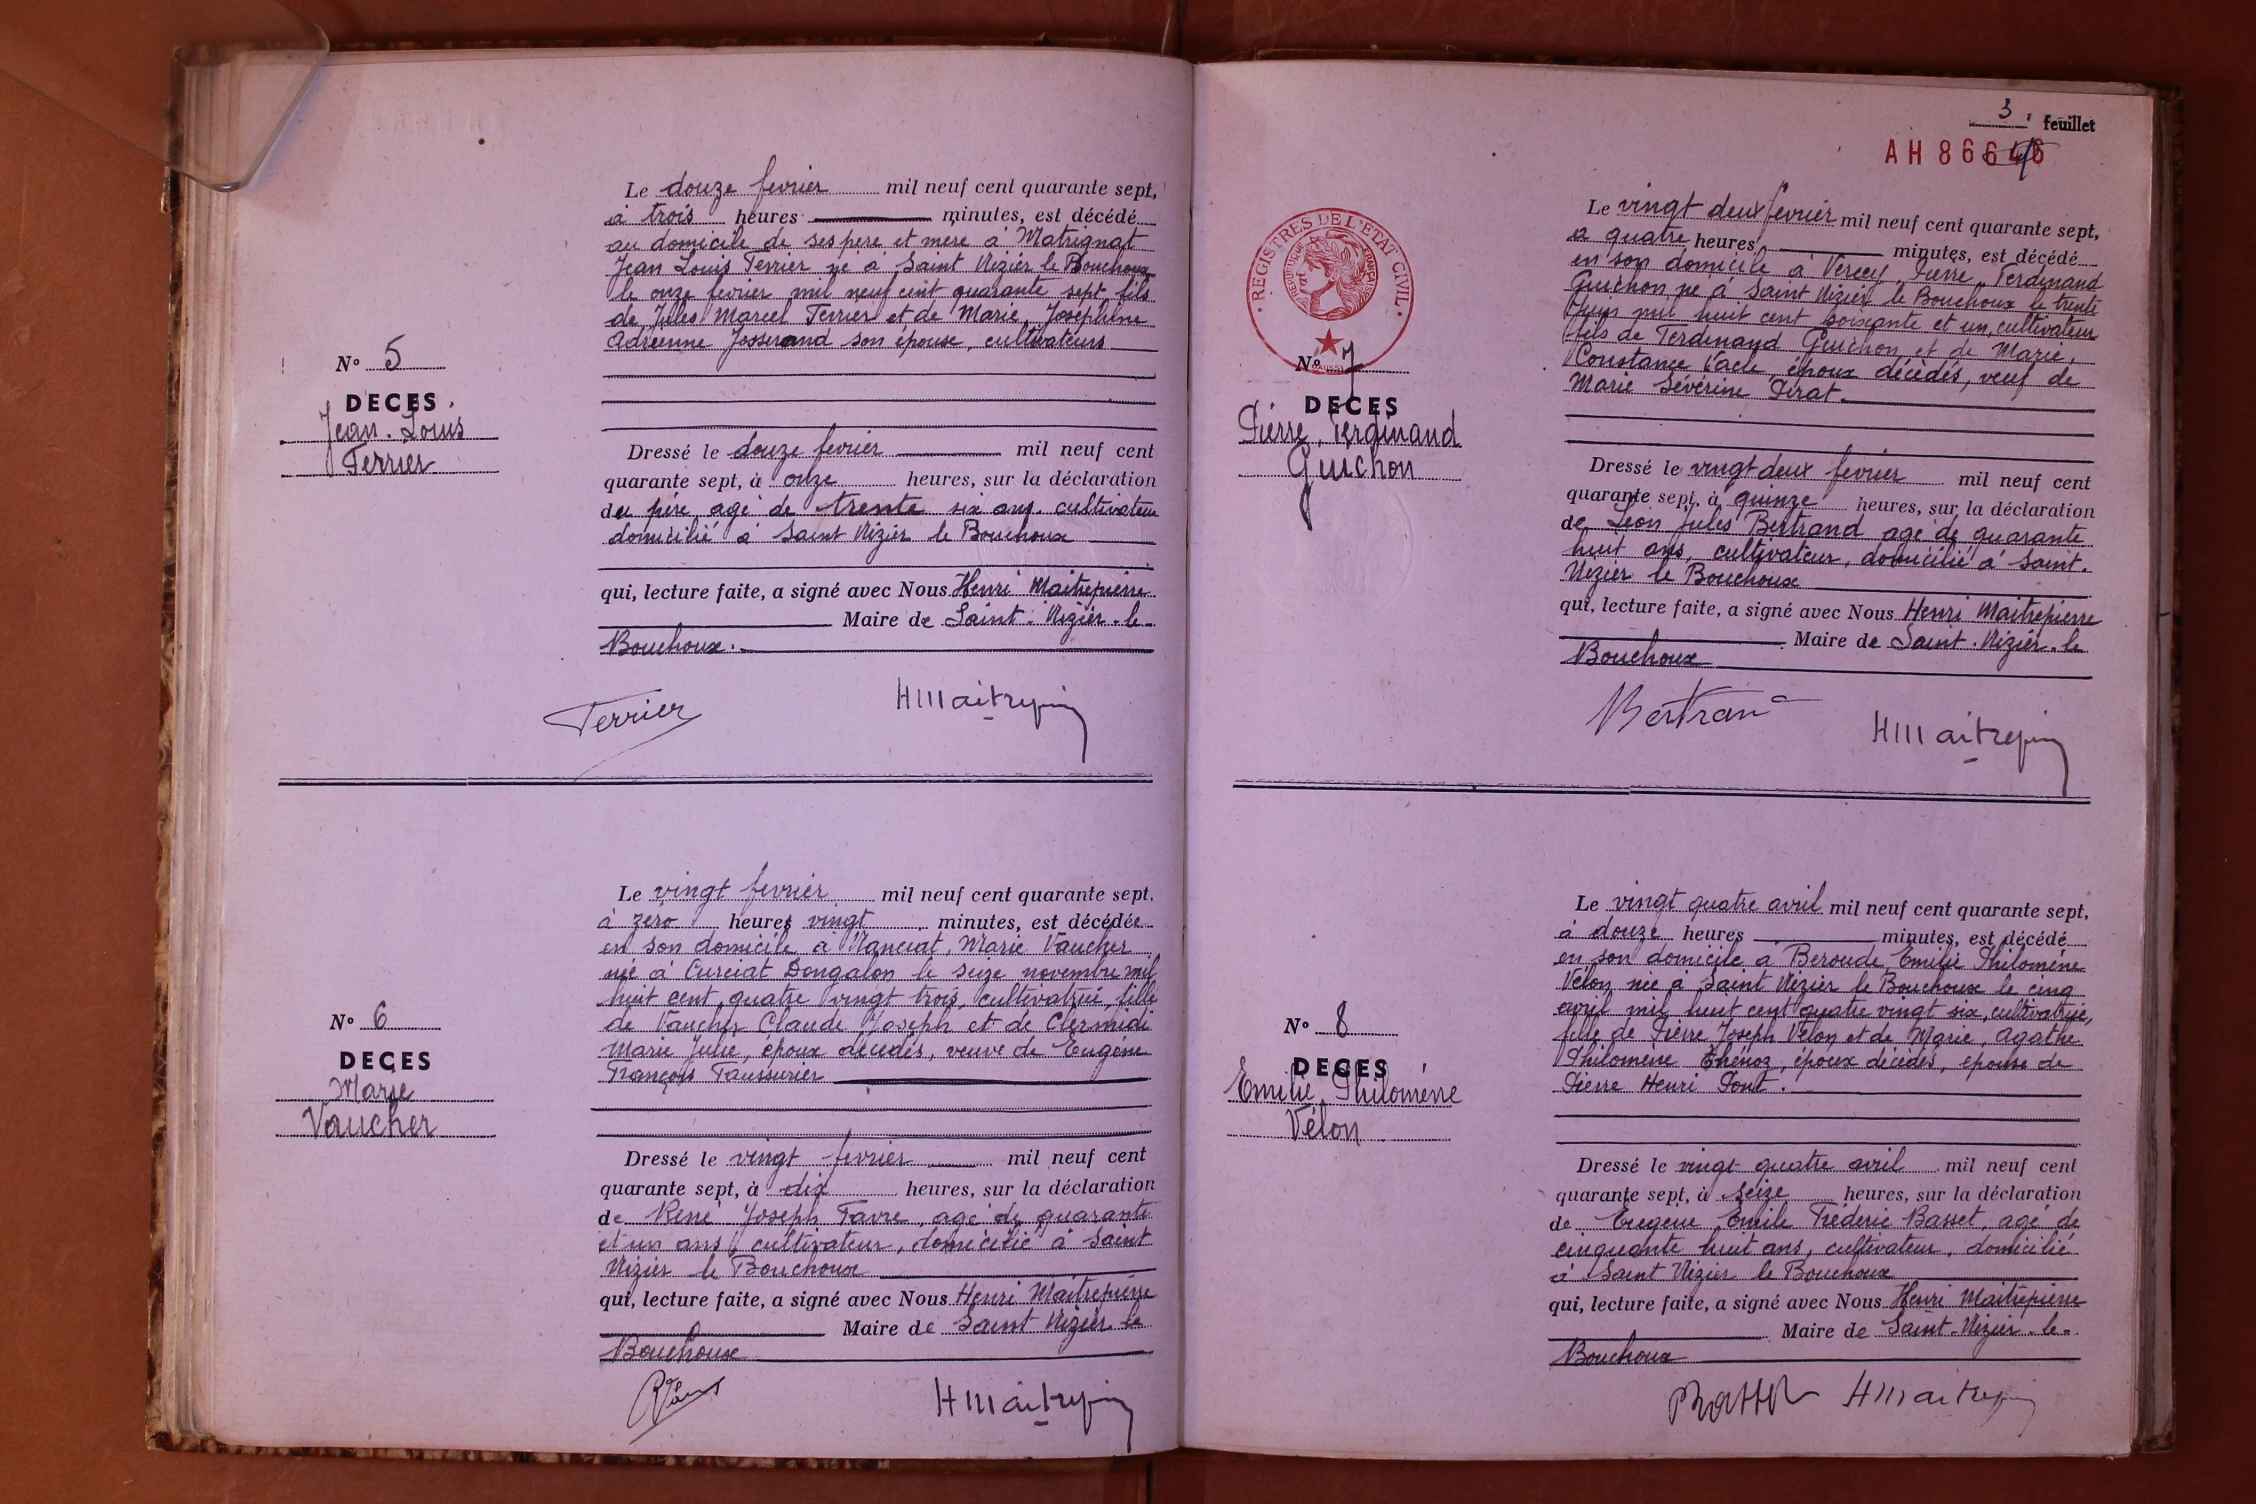 Nº 5
DECES
Jean-Louis
Terrier
Le douze fevrier mil neuf cent quarante sept,
à trois heures minutes, est décédé
au domicile de ses père et mère à Matrignat
Jean Louis Terrier né à Saint Nizier le Bouchoux
le onze fevrier mil neuf cent quarante sept fils
de Jules Marcel Terrier et de Marie, Joséphine
Adrienne Josserand son épouse, cultivateurs
Dressé le douze fevrier mil neuf cent
quarante sept, à onze heures, sur la déclaration
du père agé de trente six ans. cultivateur
domicilié à Saint Nizier le Bouchoux
qui, lecture faite, a signé avec Nous Henri Maitrepierre
Maire de Saint-Nizier-le-
Bouchoux.
Terrier HMaitrepierre
Nº 6
DECES
Marie
Vaucher
Le vingt fevrier mil neuf cent quarante sept.
à zero heures vingt minutes, est décédée
en son domicile à Manciat, Marie Vaucher
née à Curciat Dongalon le seize novembre mil
huit cent quatre vingt trois, cultivatrice, fille
de Vaucher Claude Joseph et de Clermidi
Marie Julie, époux décédés, veuve de Eugène
François Taussurier
Dressé le vingt fevrier mil neuf cent
quarante sept, à dix heures, sur la déclaration
de René Joseph Favre, agé de quarante
et un ans, cultivateur, domicilié à Saint
Nizier le Bouchoux
qui, lecture faite, a signé avec Nous Henri Maitrepierre
Maire de Saint Nizier le
Bouchoux
HMaitrepierre
3. feuillet
AH 8664
REGISTRES DE L'ETAT CIVIL
Nº 7
DECES
Pierre, Ferdinand
Guichon
Le vingt deux fevrier mil neuf cent quarante sept,
à quatre heures minutes, est décédé
en son domicile à Vercey, Pierre Ferdinand
Guichon né à Saint Nizier le Bouchoux le trente
juin mil huit cent soixante et un, cultivateur
fils de Ferdinand Guichon et de Marie,
Constance Vacle, époux décédés, veuf de
Marie Sévérine Pirat.
Dressé le vingt deux fevrier mil neuf cent
quarante sept, à quinze heures, sur la déclaration
de Léon Jules Bertrand agé de quarante
huit ans, cultivateur, domicilié à Saint-
Nizier le Bouchoux
qui, lecture faite, a signé avec Nous Henri Maitrepierre
Maire de Saint-Nizier-le
Bouchoux
Bertrand HMaitrepierre
Nº 8
DECES
Emilie, Philomène
Vélon
Le vingt quatre avril mil neuf cent quarante sept,
à douze heures minutes, est décédé
en son domicile à Beroude, Emilie Philomène
Vélon née à Saint Nizier le Bouchoux le cinq
avril mil huit cent quatre vingt six, cultivatrice,
fille de Pierre Joseph Vélon et de Marie, Agathe
Philomène Thénoz, époux décédés, épouse de
Pierre Henri Pont.
Dressé le vingt quatre avril mil neuf cent
quarante sept, à seize heures, sur la déclaration
de Eugène Emile Fréderic Basset, agé de
cinquante huit ans, cultivateur, domicilié
à Saint Nizier le Bouchoux
qui, lecture faite, a signé avec Nous Henri Maitrepierre
Maire de Saint-Nizier-le-
Bouchoux
Basset HMaitrepierre